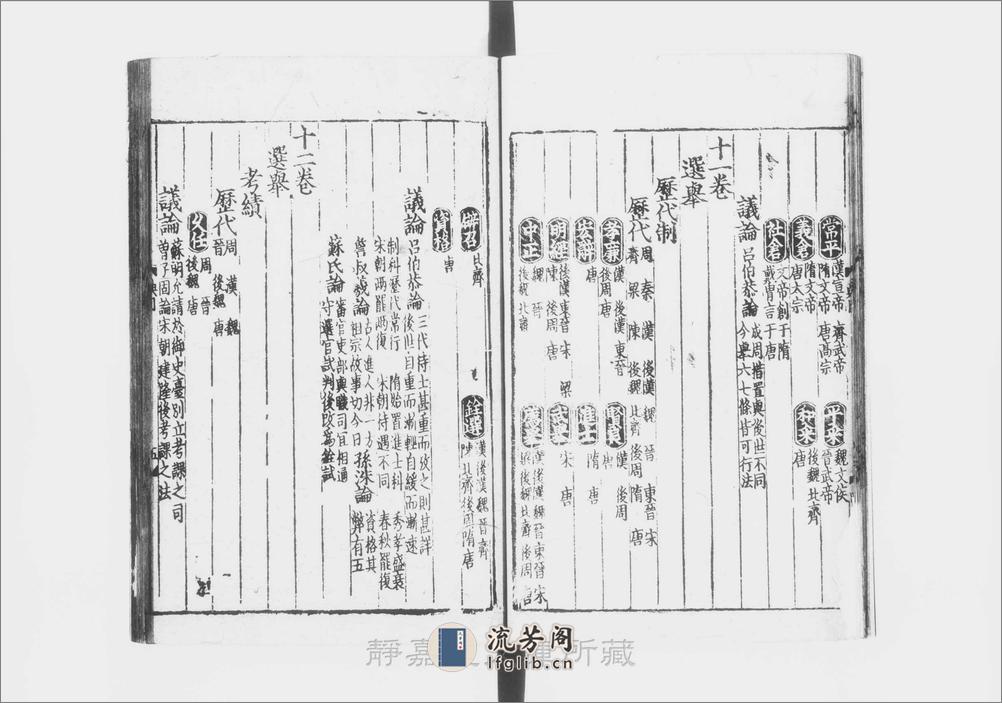 常平 漢宣帝 齊武帝 隋文帝 唐高宗
平糴 魏文侯 晉武帝
義倉 隋文帝 唐太宗
和糴 後魏 北齊 唐
社倉 文帝創于隋 戴胄言于唐
議論 呂伯恭論 成周措置與後世不同 今舉六七條皆可行法
十一卷
選舉
歷代制
歷代 周 秦 漢 後漢 魏 晉 東晉 宋 齊 梁 陳 後魏 北齊 後周 隋 唐
孝廉 漢 後漢 東晉 後周 唐
賢良 漢 後周 唐
唐
進士 隋 唐
明經 後漢 東晉 宋 梁 陳 後周 唐
武舉 宋 唐
中正 魏 晉 後魏 北齊
漢 後漢 魏 晉 東晉 宋 梁 後魏 北齊 後周 唐
辟召 北齊
銓選 漢 後漢 魏 晉 齊 陳 北齊 後周 隋 唐
資格 唐
議論 呂伯恭論 三代待士甚重而攷之則甚詳 後世自重而漸輕自緩而漸速
制科歷代常行 隋始置進士科 秀孝盛衰
宋朝兩罷兩復 宋朝待遇不同 春秋罷復
古人進人非一方 祖宗故事切今日 孫洙論 資格其弊有五
蘇氏論 審官吏部典職司宜相通 守選官試判後改為銓試
十二卷
選舉
考績
歷代 周 漢 魏 晉 後魏 唐
久任 周 晉 後魏 唐
議論 蘇明允請於御史臺別立考課之司 曾子固論宋朝建隆後考課之法
靜嘉 所藏
流芳阁
lfglib.cn